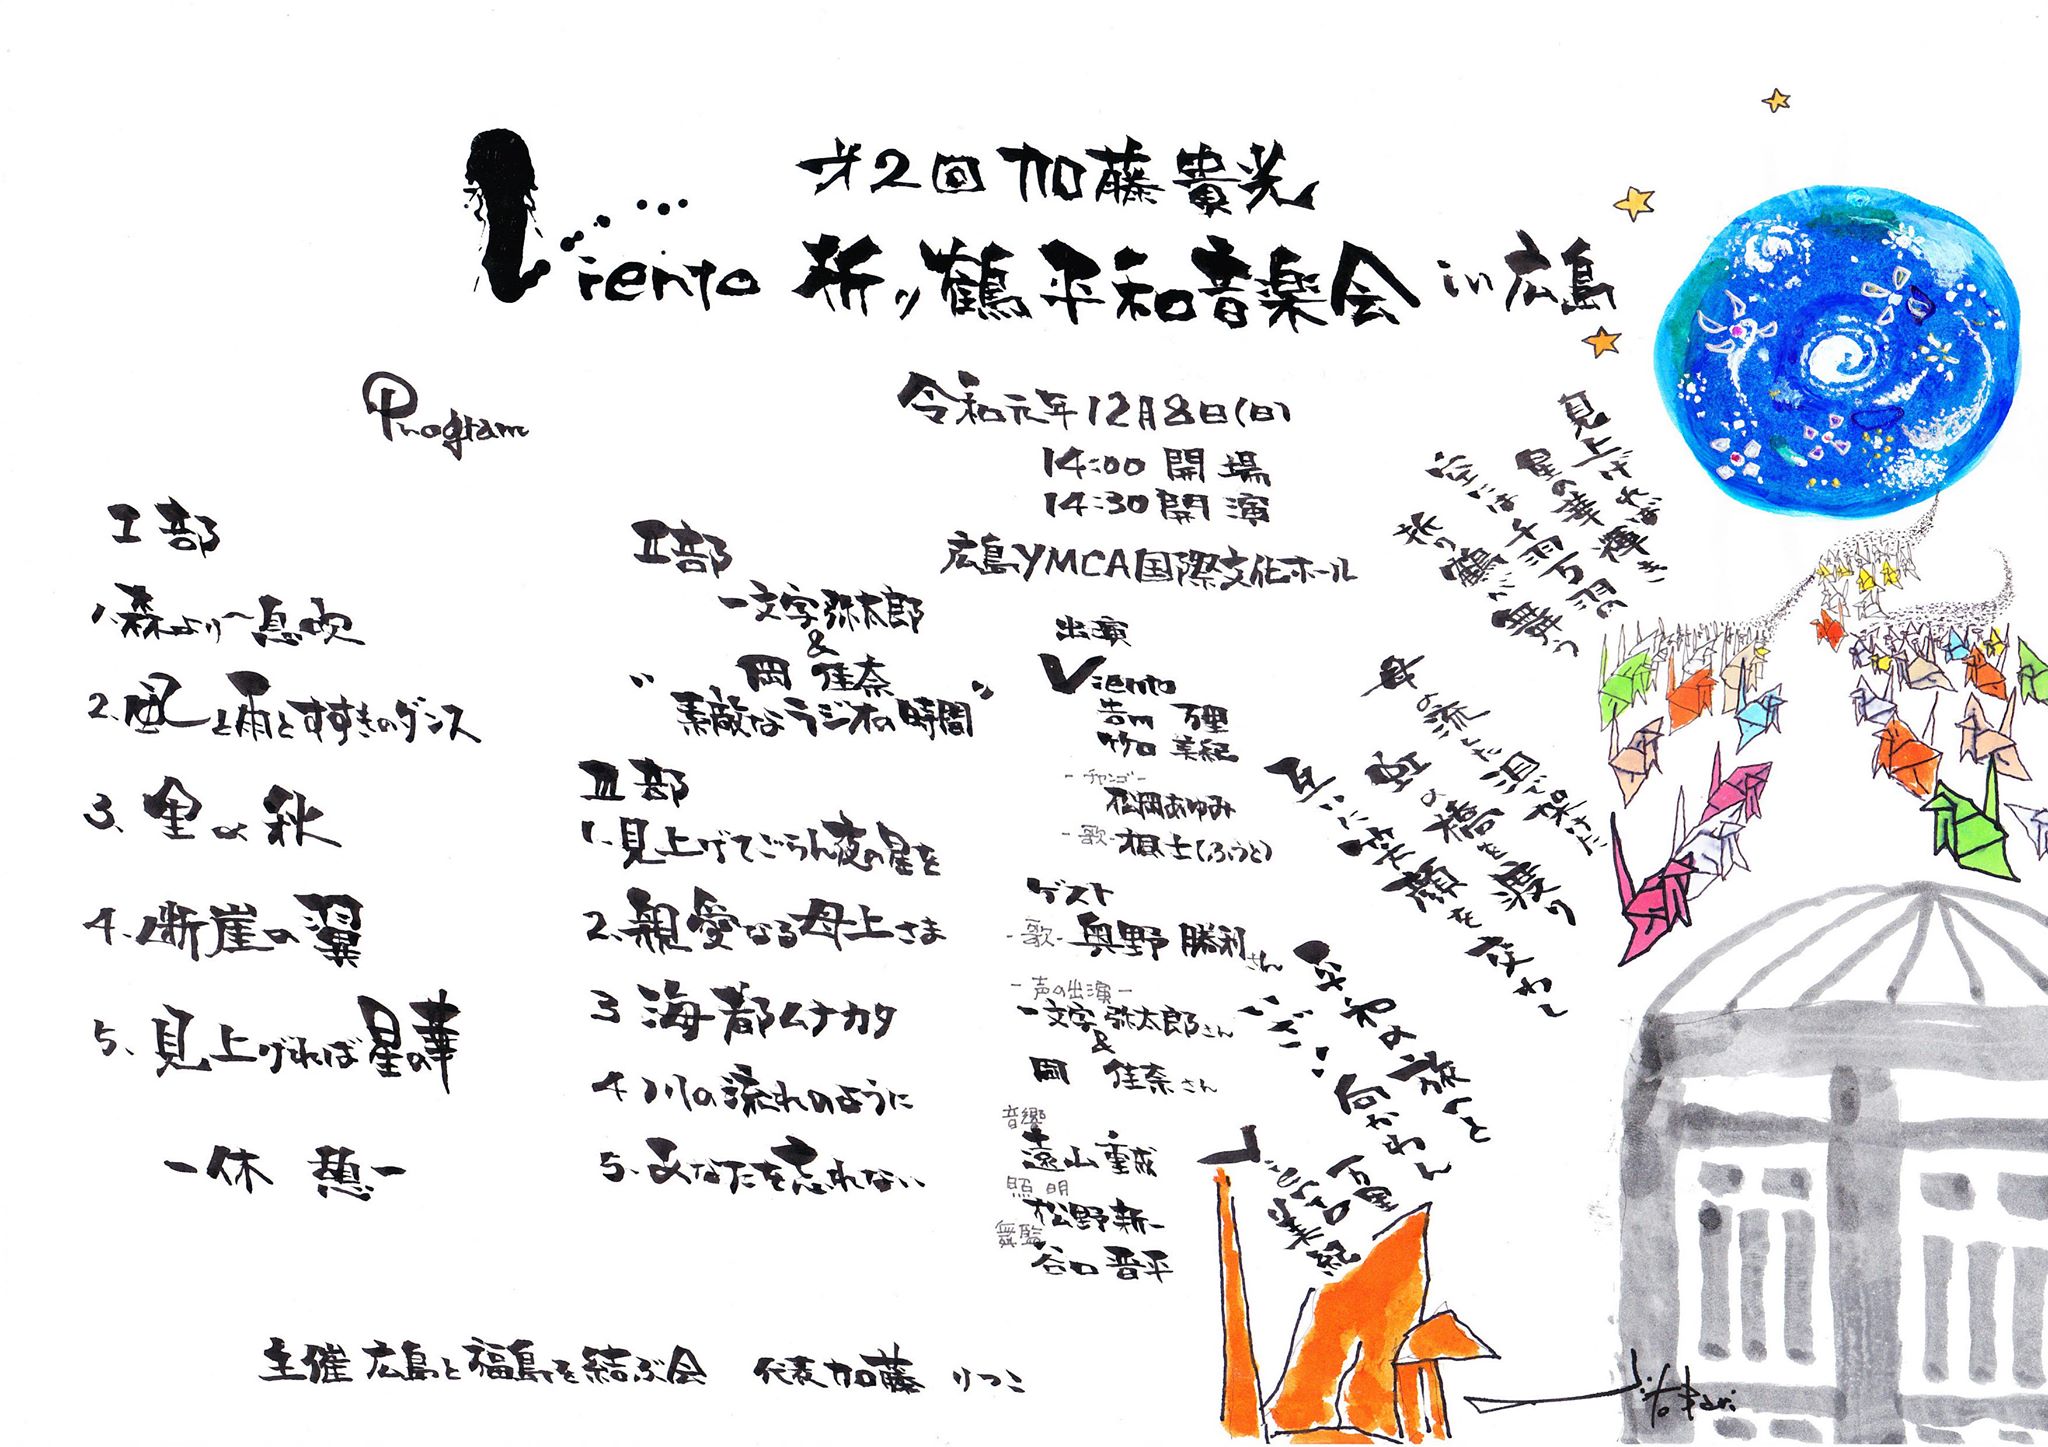 才2回加藤貴光
Viento 折り鶴平和音楽会 in 広島
Program
令和元年12月8日(日)
14:00 開場
14:30 開演
広島YMCA国際文化ホール
I部
1.森より〜息吹
2.風と雨とすすきのダンス
3.里の秋
4.断崖の翼
5.見上げれば星の華
ー休憩ー
II部
一文字弥太郎
&
岡 佳奈
"素敵なラジオの時間"
III部
1.見上げてごらん夜の星を
2.親愛なる母上さま
3 海都ムナカタ
4 川の流れのように
5.あなたを忘れない
出演
Viento
吉川 万里
竹口 美紀
-チャンゴ-
松岡あゆみ
-歌-楓士(ふうと)
ゲスト
-歌-奥野 勝利さん
-声の出演-
一文字 弥太郎さん
&
岡 佳奈さん
音響
遠山 重成
照明
松野新一
舞監
谷口晋平
見上げれば輝き
星の華
空には千羽万羽の
折り鶴が舞う
母の流した涙で架けた
虹の橋を渡り
互いに笑顔を交わし
平和の旅へと
いざ!向かわん
万里
美紀
主催 広島と福島を結ぶ会 代表 加藤 りつこ